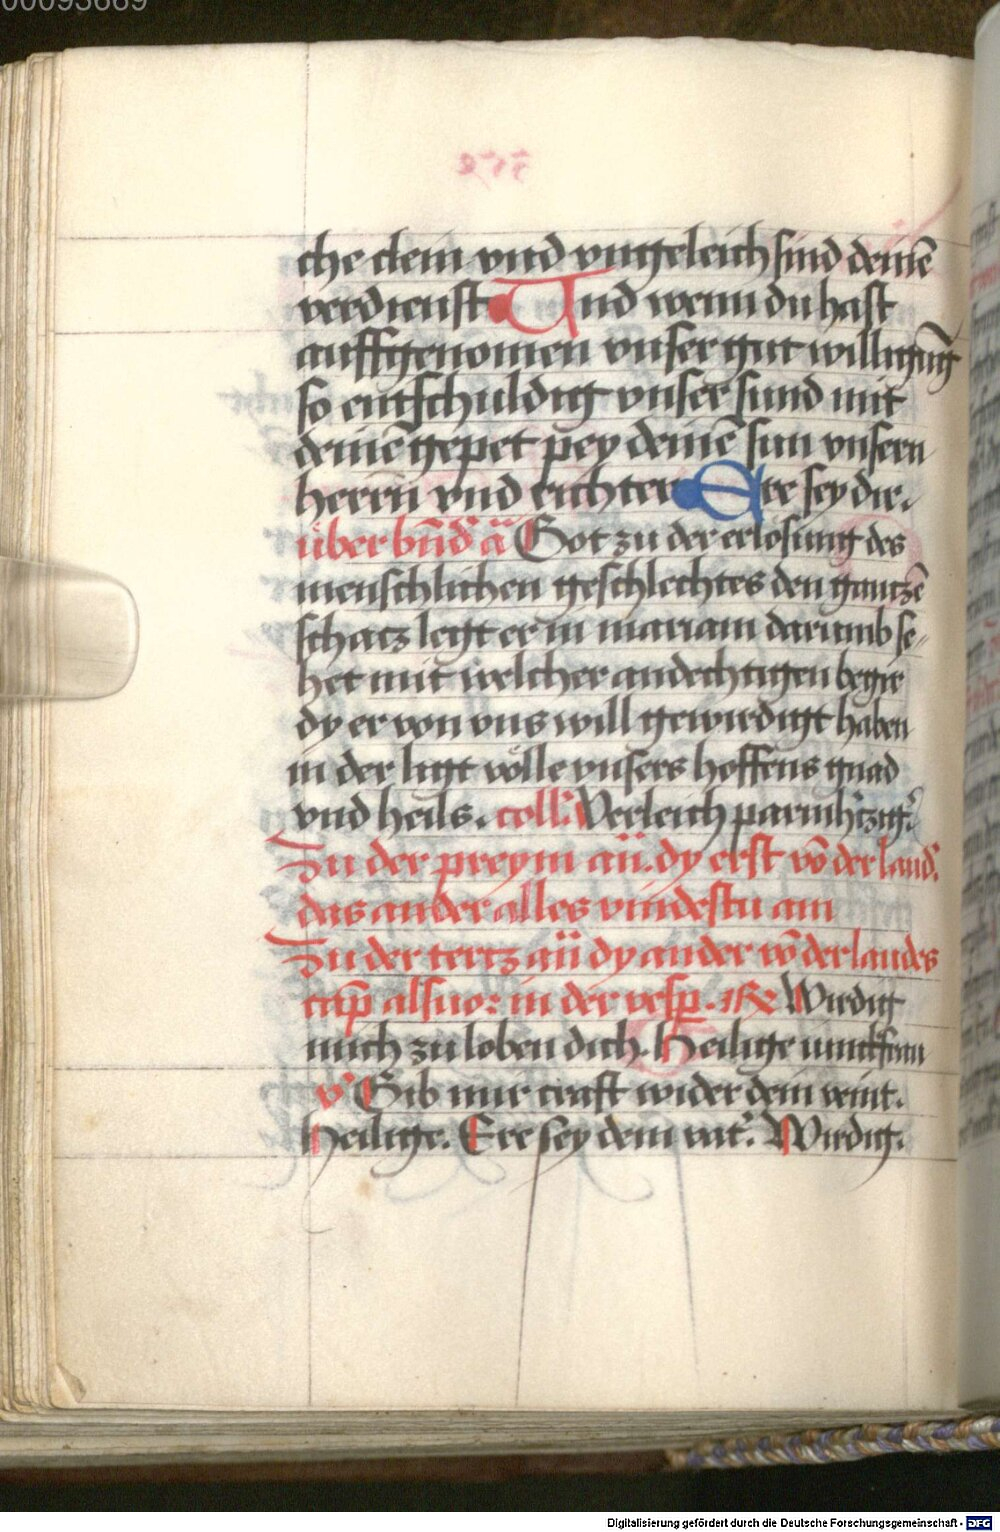 00093669
che clein vnd vngeleich sind deinē
verdienst Und wenn du hast
auffgenomen vnser gut willigūg
so entschuldig vnser sund mit
deinē gepet pey deinē sun vnsern
herrn vnd richter Ere sey die.
über bn̄d' ā Got zu der erlösung des
menschlichen geschlechtes den gantzē
schatz legt er in mariam darumb se-
het mit welcher andechtigen begir
dy er von vns will gewirdigt haben
in der ligt völle vnsers hoffens gnad
vnd heils. coll' Verleich parmh'tzig'
Zu der preym añ. dy erst vō der laud'.
das ander alles vindestu am
Zu der tertz añ dy ander vō der laudes
cap̄ als vor in der vesp̄. Re Wirdig
mich zu loben dich. Heilige iunckfrau
v' Gib mir craft wider dein veint.
Heilige. Ere sey dem vat'. Wirdig.
Digitalisierung gefördert durch die Deutsche Forschungsgemeinschaft - DFG